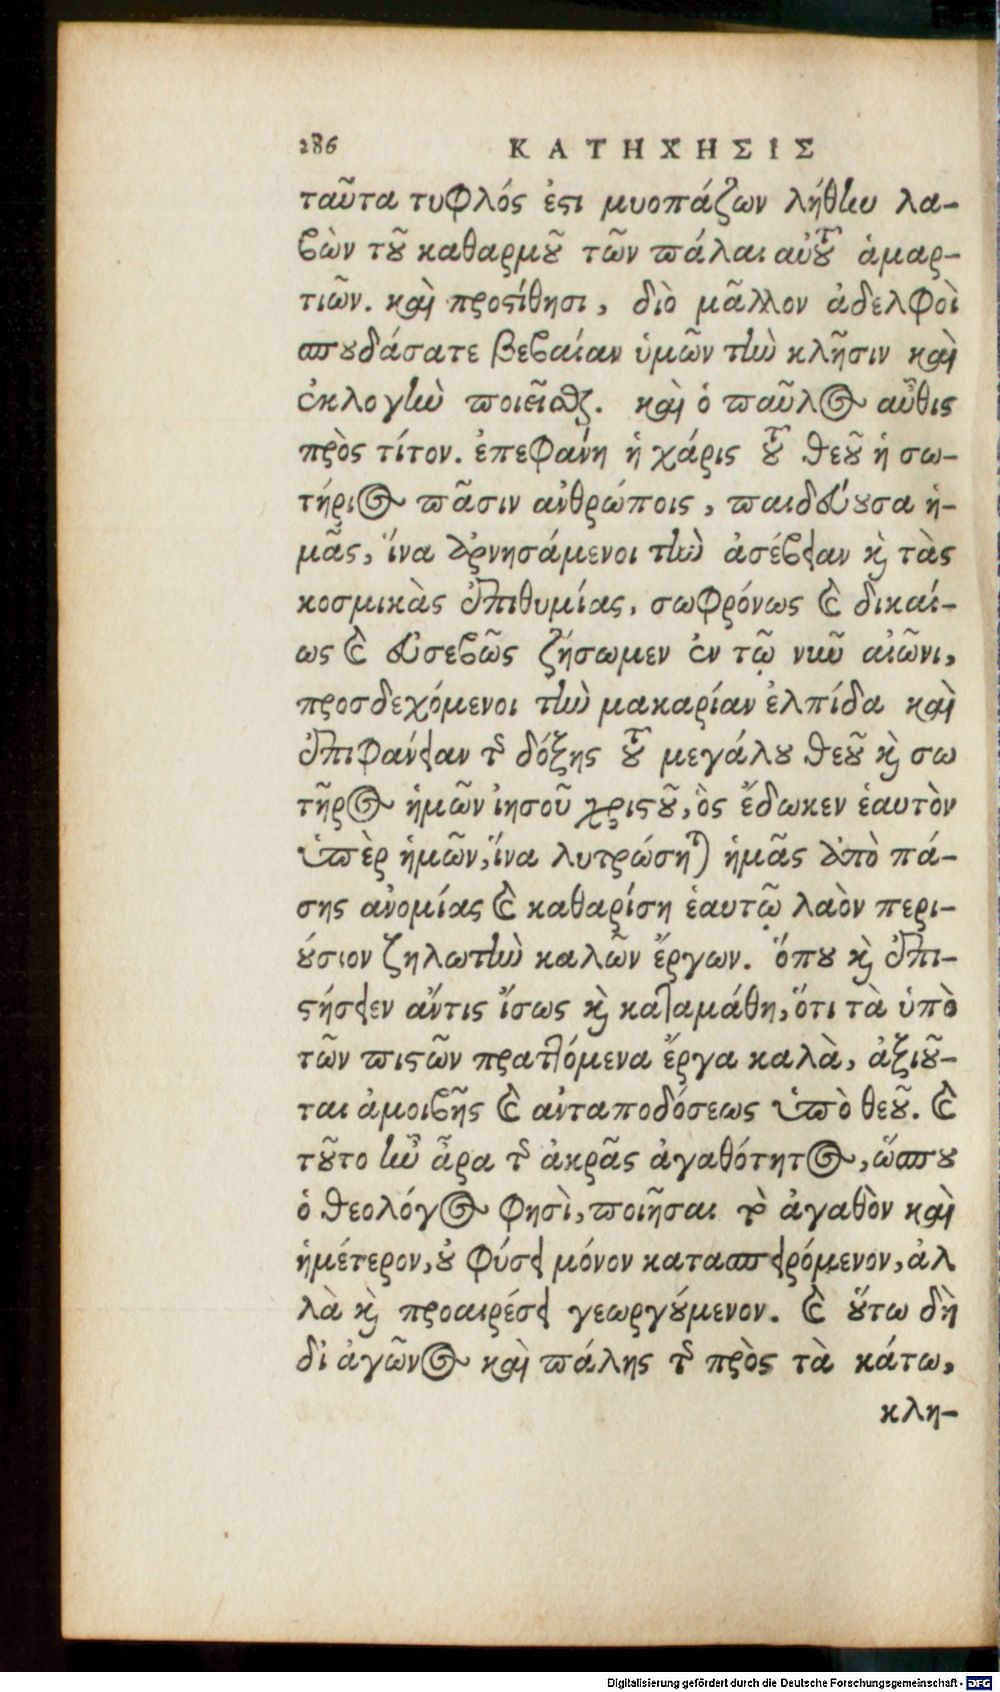 286 ΚΑΤΗΧΗΣΙΣ
ταῦτα τυφλός ἐϛι μυοπάζων λήθην λα-
βὼν τȣ͂ καθαρμȣ͂ τῶν πάλαι αὐτȣ͂ ἁμαρ-
τιῶν. καὶ προϛίθησι, διὸ μᾶλλον ἀδελφοὶ
σπȣδάσατε βεβαίαν ὑμῶν τὴν κλῆσιν καὶ
ἐκλογὴν ποιεῖσθαι. καὶ ὁ παῦλος αὖθις
πρὸς τίτον. ἐπεφάνη ἡ χάρις τȣ͂ θεȣ͂ ἡ σω-
τήριος πᾶσιν ἀνθρώποις, παιδεύȣσα ἡ-
μᾶς, ἵνα ἀρνησάμενοι τὴν ἀσέβειαν κὶ τὰς
κοσμικὰς ἐπιθυμίας, σωφρόνως καὶ δικαί-
ως καὶ εὐσεβῶς ζήσωμεν ἐν τῷ νῦν αἰῶνι,
προσδεχόμενοι τὴν μακαρίαν ἐλπίδα καὶ
ἐπιφάνειαν τῆς δόξης τȣ͂ μεγάλȣ θεȣ͂ κὶ σω
τῆρος ἡμῶν ἰησοῦ χριϛȣ͂, ὃς ἔδωκεν ἑαυτὸν
ὑπὲρ ἡμῶν, ἵνα λυτρώσηται ἡμᾶς ἀπὸ πά-
σης ἀνομίας καὶ καθαρίση ἑαυτῷ λαὸν περι-
ȣ́σιον ζηλωτὴν καλῶν ἔργων. ὅπȣ κὶ ἐπι-
ϛήσειεν ἄντις ἴσως κὶ καταμάθη, ὅτι τὰ ὑπὸ
τῶν πιϛῶν πραττόμενα ἔργα καλὰ, ἀξιȣ͂-
ται ἀμοιβῆς καὶ ἀνταποδόσεως ὑπὸ θεȣ͂. καὶ
τȣ͂το ἦν ἆρα τῆς ἀκρᾶς ἀγαθότητος, ὥσπȣ
ὁ θεολόγος φησὶ, ποιῆσαι τὸ ἀγαθὸν καὶ
ἡμέτερον, ȣ̓ φύσει μόνον κατασπειρόμενον, ἀλ
λὰ κὶ προαιρέσει γεωργȣ́μενον. καὶ ȣ̔́τω δὴ
δι ἀγῶνος καὶ πάλης τῆς πρὸς τὰ κάτω,
κλη-
Digitalisierung gefördert durch die Deutsche Forschungsgemeinschaft - DFG